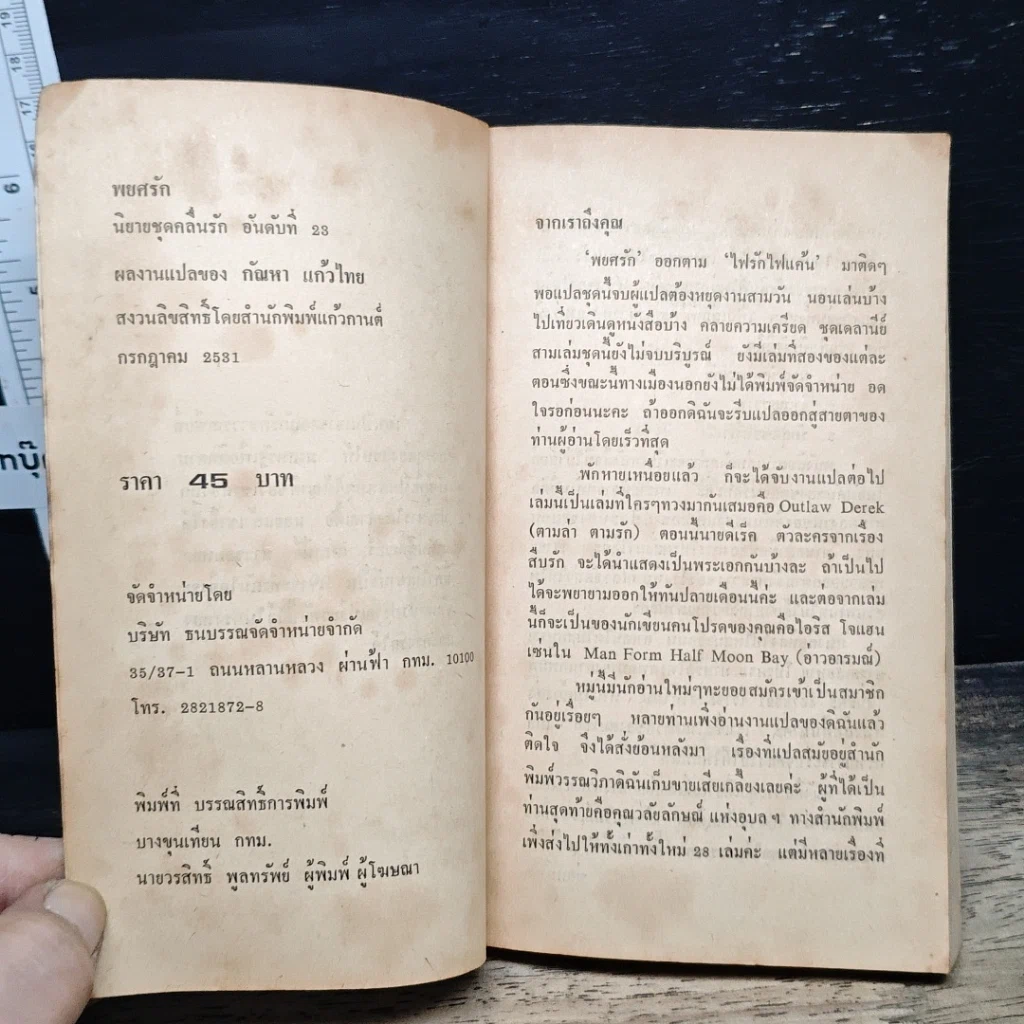 พยศรัก
นิยายชุดคลื่นรัก อันดับที่ 23
ผลงานแปลของ กัณหา แก้วไทย
สงวนลิขสิทธิ์โดยสำนักพิมพ์แก้วกานต์
กรกฎาคม 2531
ราคา 45 บาท
จัดจำหน่ายโดย
บริษัท ธนบรรณจัดจำหน่ายจำกัด
35/37-1 ถนนหลานหลวง ผ่านฟ้า กทม. 10100
โทร. 2821872-8
พิมพ์ที่ บรรณสิทธิ์การพิมพ์
บางขุนเทียน กทม.
นายวรสิทธิ์ พูลทรัพย์ ผู้พิมพ์ ผู้โฆษณา
จากเราถึงคุณ
'พยศรัก' ออกตาม 'ไฟรักไฟแค้น' มาติดๆ
พอแปลชุดนี้จบผู้แปลต้องหยุดงานสามวัน นอนเล่นบ้าง
ไปเที่ยวเดินดูหนังสือบ้าง คลายความเครียด ชุดเดลานีย์
สามเล่มชุดนี้ยังไม่จบบริบูรณ์ ยังมีเล่มที่สองของแต่ละ
ตอนซึ่งขณะนี้ทางเมืองนอกยังไม่ได้พิมพ์จัดจำหน่าย อด
ใจรอก่อนนะคะ ถ้าออกดิฉันจะรีบแปลออกสู่สายตาของ
ท่านผู้อ่านโดยเร็วที่สุด
พักหายเหนื่อยแล้ว ก็จะได้จับงานแปลต่อไป
เล่มนี้เป็นเล่มที่ใครๆทวงมากันเสมอคือ Outlaw Derek
(ตามล่า ตามรัก) ตอนนี้นายดีเร็ค ตัวละครจากเรื่อง
สืบรัก จะได้นำแสดงเป็นพระเอกกันบ้างละ ถ้าเป็นไป
ได้จะพยายามออกให้ทันปลายเดือนนี้ค่ะ และต่อจากเล่ม
นี้ก็จะเป็นของนักเขียนคนโปรดของคุณคือไอริส โจแฮน
เซ่นใน Man Form Half Moon Bay (อ่าวอารมณ์)
หมู่นี้มีนักอ่านใหม่ๆทะยอยสมัครเข้าเป็นสมาชิก
กันอยู่เรื่อยๆ หลายท่านเพิ่งอ่านงานแปลของดิฉันแล้ว
ติดใจ จึงได้สั่งย้อนหลังมา เรื่องที่แปลสมัยอยู่สำนัก
พิมพ์วรรณวิภาดิฉันเก็บขายเสียเกลี้ยงเลยค่ะ ผู้ที่ได้เป็น
ท่านสุดท้ายคือคุณวลัยลักษณ์ แห่งอุบล ฯ ทางสำนักพิมพ์
เพิ่งส่งไปให้ทั้งเก่าทั้งใหม่ 28 เล่มค่ะ แต่มีหลายเรื่องที่
19
18
17
6
5